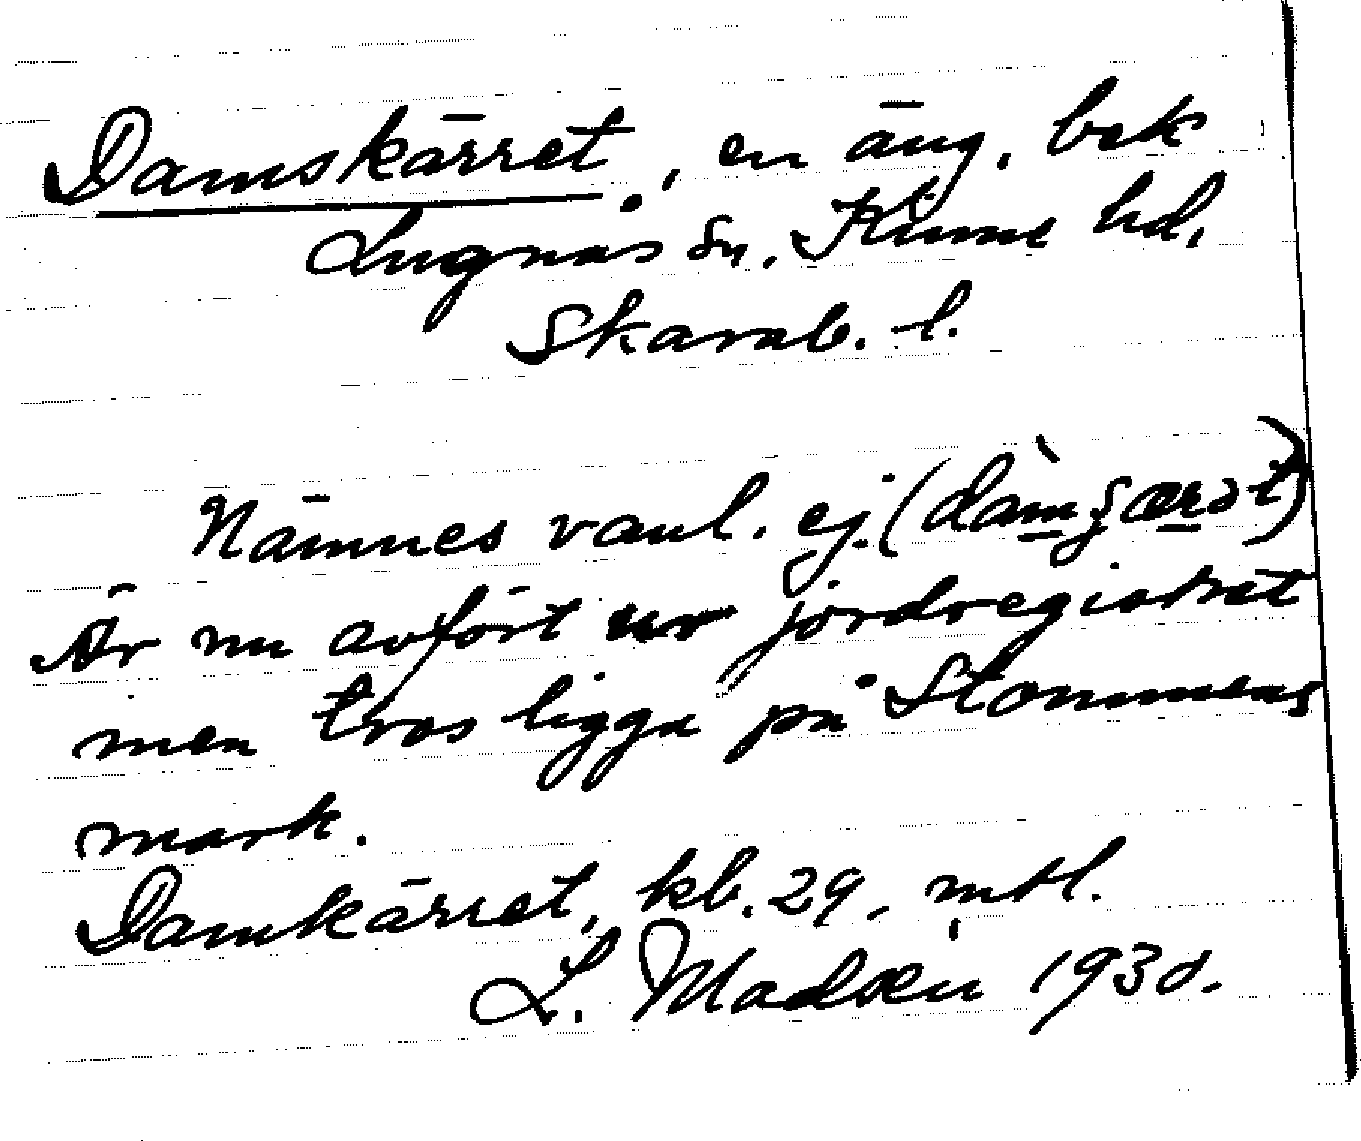 Damskärret, en äng. bek
Lugnås sn. Kinne hd,
Skarab. l.
Nämnes vanl. ej
Är nu avfört ur jordregistret
men tros ligga på Stommens
mark.
Damkärret, kb. 29, mtl.
L. 1930.